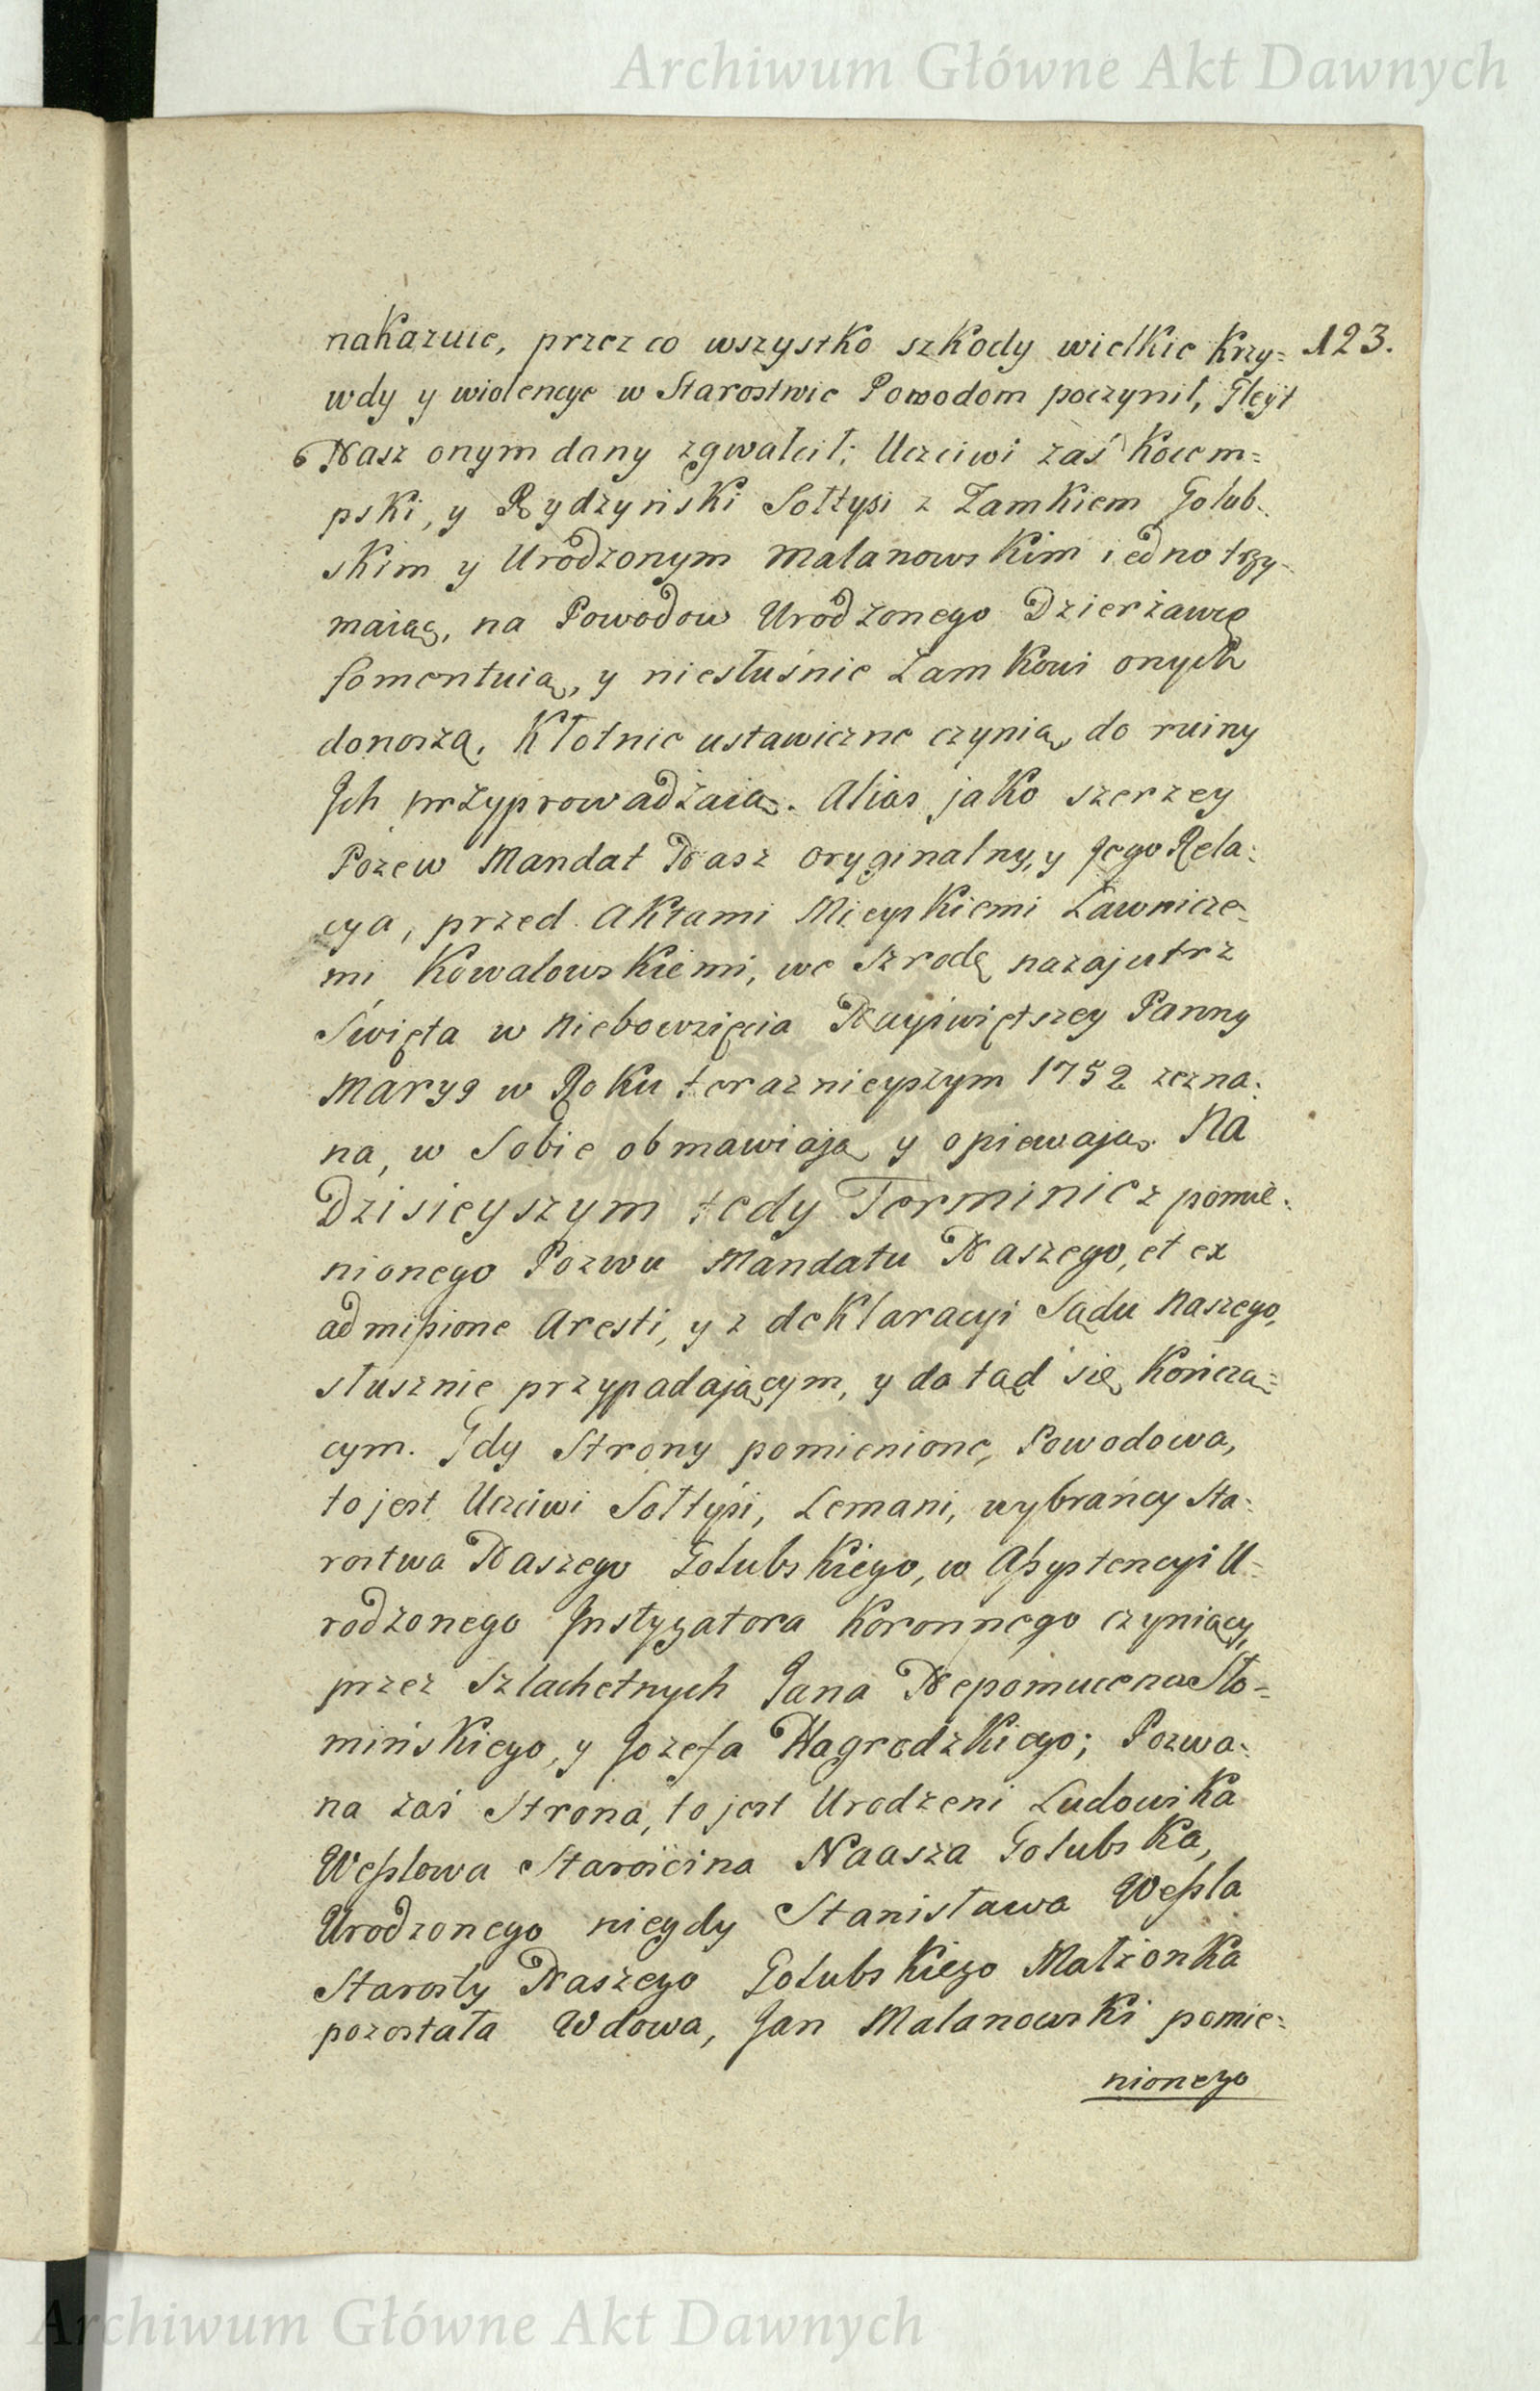 Archiwum Główne Akt Dawnych
123.
nakazuie, przez co wszystko szkody wielkie krzy=
wdy y wiolencye w Starostwie Powodom poczynił, Gleyt
Nasz onym dany zgwałcił; Uczciwi zaś Kocem=
pski, y Rydzyński Sołtysi z Zamkiem Golub=
skim y Urodzonym Malanowskim iedno trzy=
maiąc, na Powodow Urodzonego Dzierżawcę
fomentuią, y niesłuśnie Zamkowi onych
donoszą, Kłotnie ustawiczne czynią, do ruiny
Jch przyprowadzaią. Alias jako szerzey
Pozew Mandat Nasz oryginalny, y Jego Rela=
cya, przed Aktami Mieyskiemi Ławnicze=
mi Kowalowskiemi, we Szrodę nazajutrz
Święta w Niebowzięcia Nayświętszey Panny
Maryi w Roku teraznieyszym 1752 zezna=
na, w Sobie obmawiają y opiewają. Na
Dzisieyszym tedy Terminie z pomie=
nionego Pozwu Mandatu Naszego, et ex
admissione Aresti, y z deklaracyi Sądu Naszego,
słusznie przypadającym, y do tąd się Kończą=
cym. Gdy Strony pomienione, Powodowa,
to jest Uczciwi Sołtysi, Lemani, wybrańcy Sta=
rostwa Naszego Golubskiego, w Assystencyi U=
rodzonego Jnstygatora Koronnego czyniący,
przez Szlachetnych Jana Nepomucena Sło=
mińskiego, y Jozefa Nagrodzkiego; Pozwa=
na zaś Strona, to jest Urodzeni Ludowika
Wesslowa Starościna Naasza Golubska,
Urodzonego niegdy Stanisława Wessla
Starosty Naszego Golubskiego Małżonka
pozostała Wdowa, Jan Malanowski pomie=
nionego
Archiwum Główne Akt Dawnych